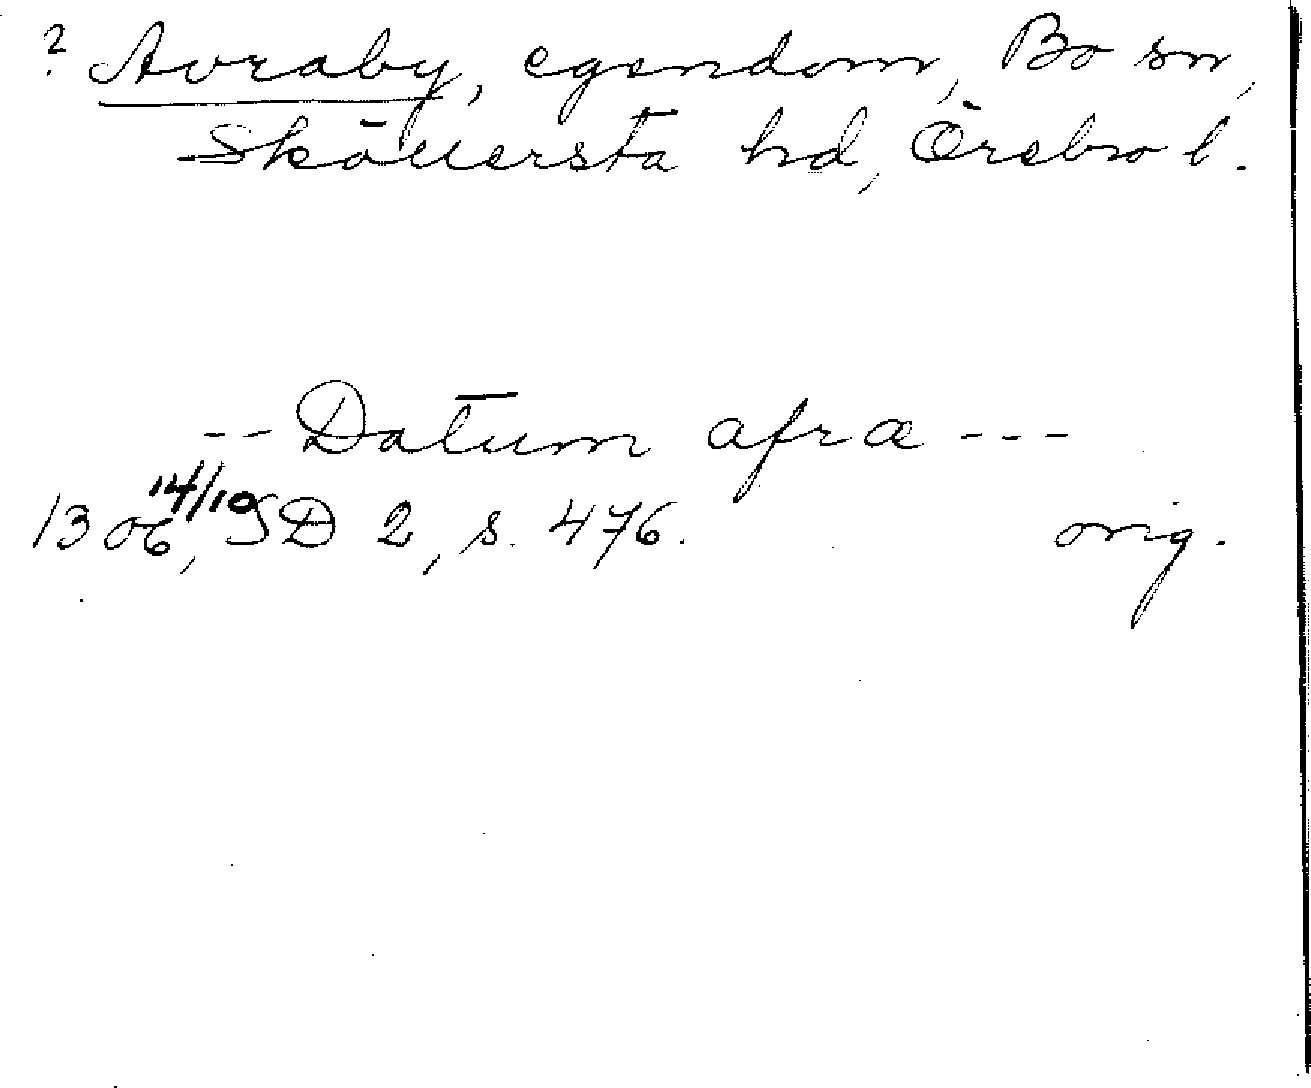 ? Avraby, egendom, Bo sn,
Sköllersta hd, Örebro l.
-- Datum afræ ---
1306 14/10, SD 2, s. 476. orig.